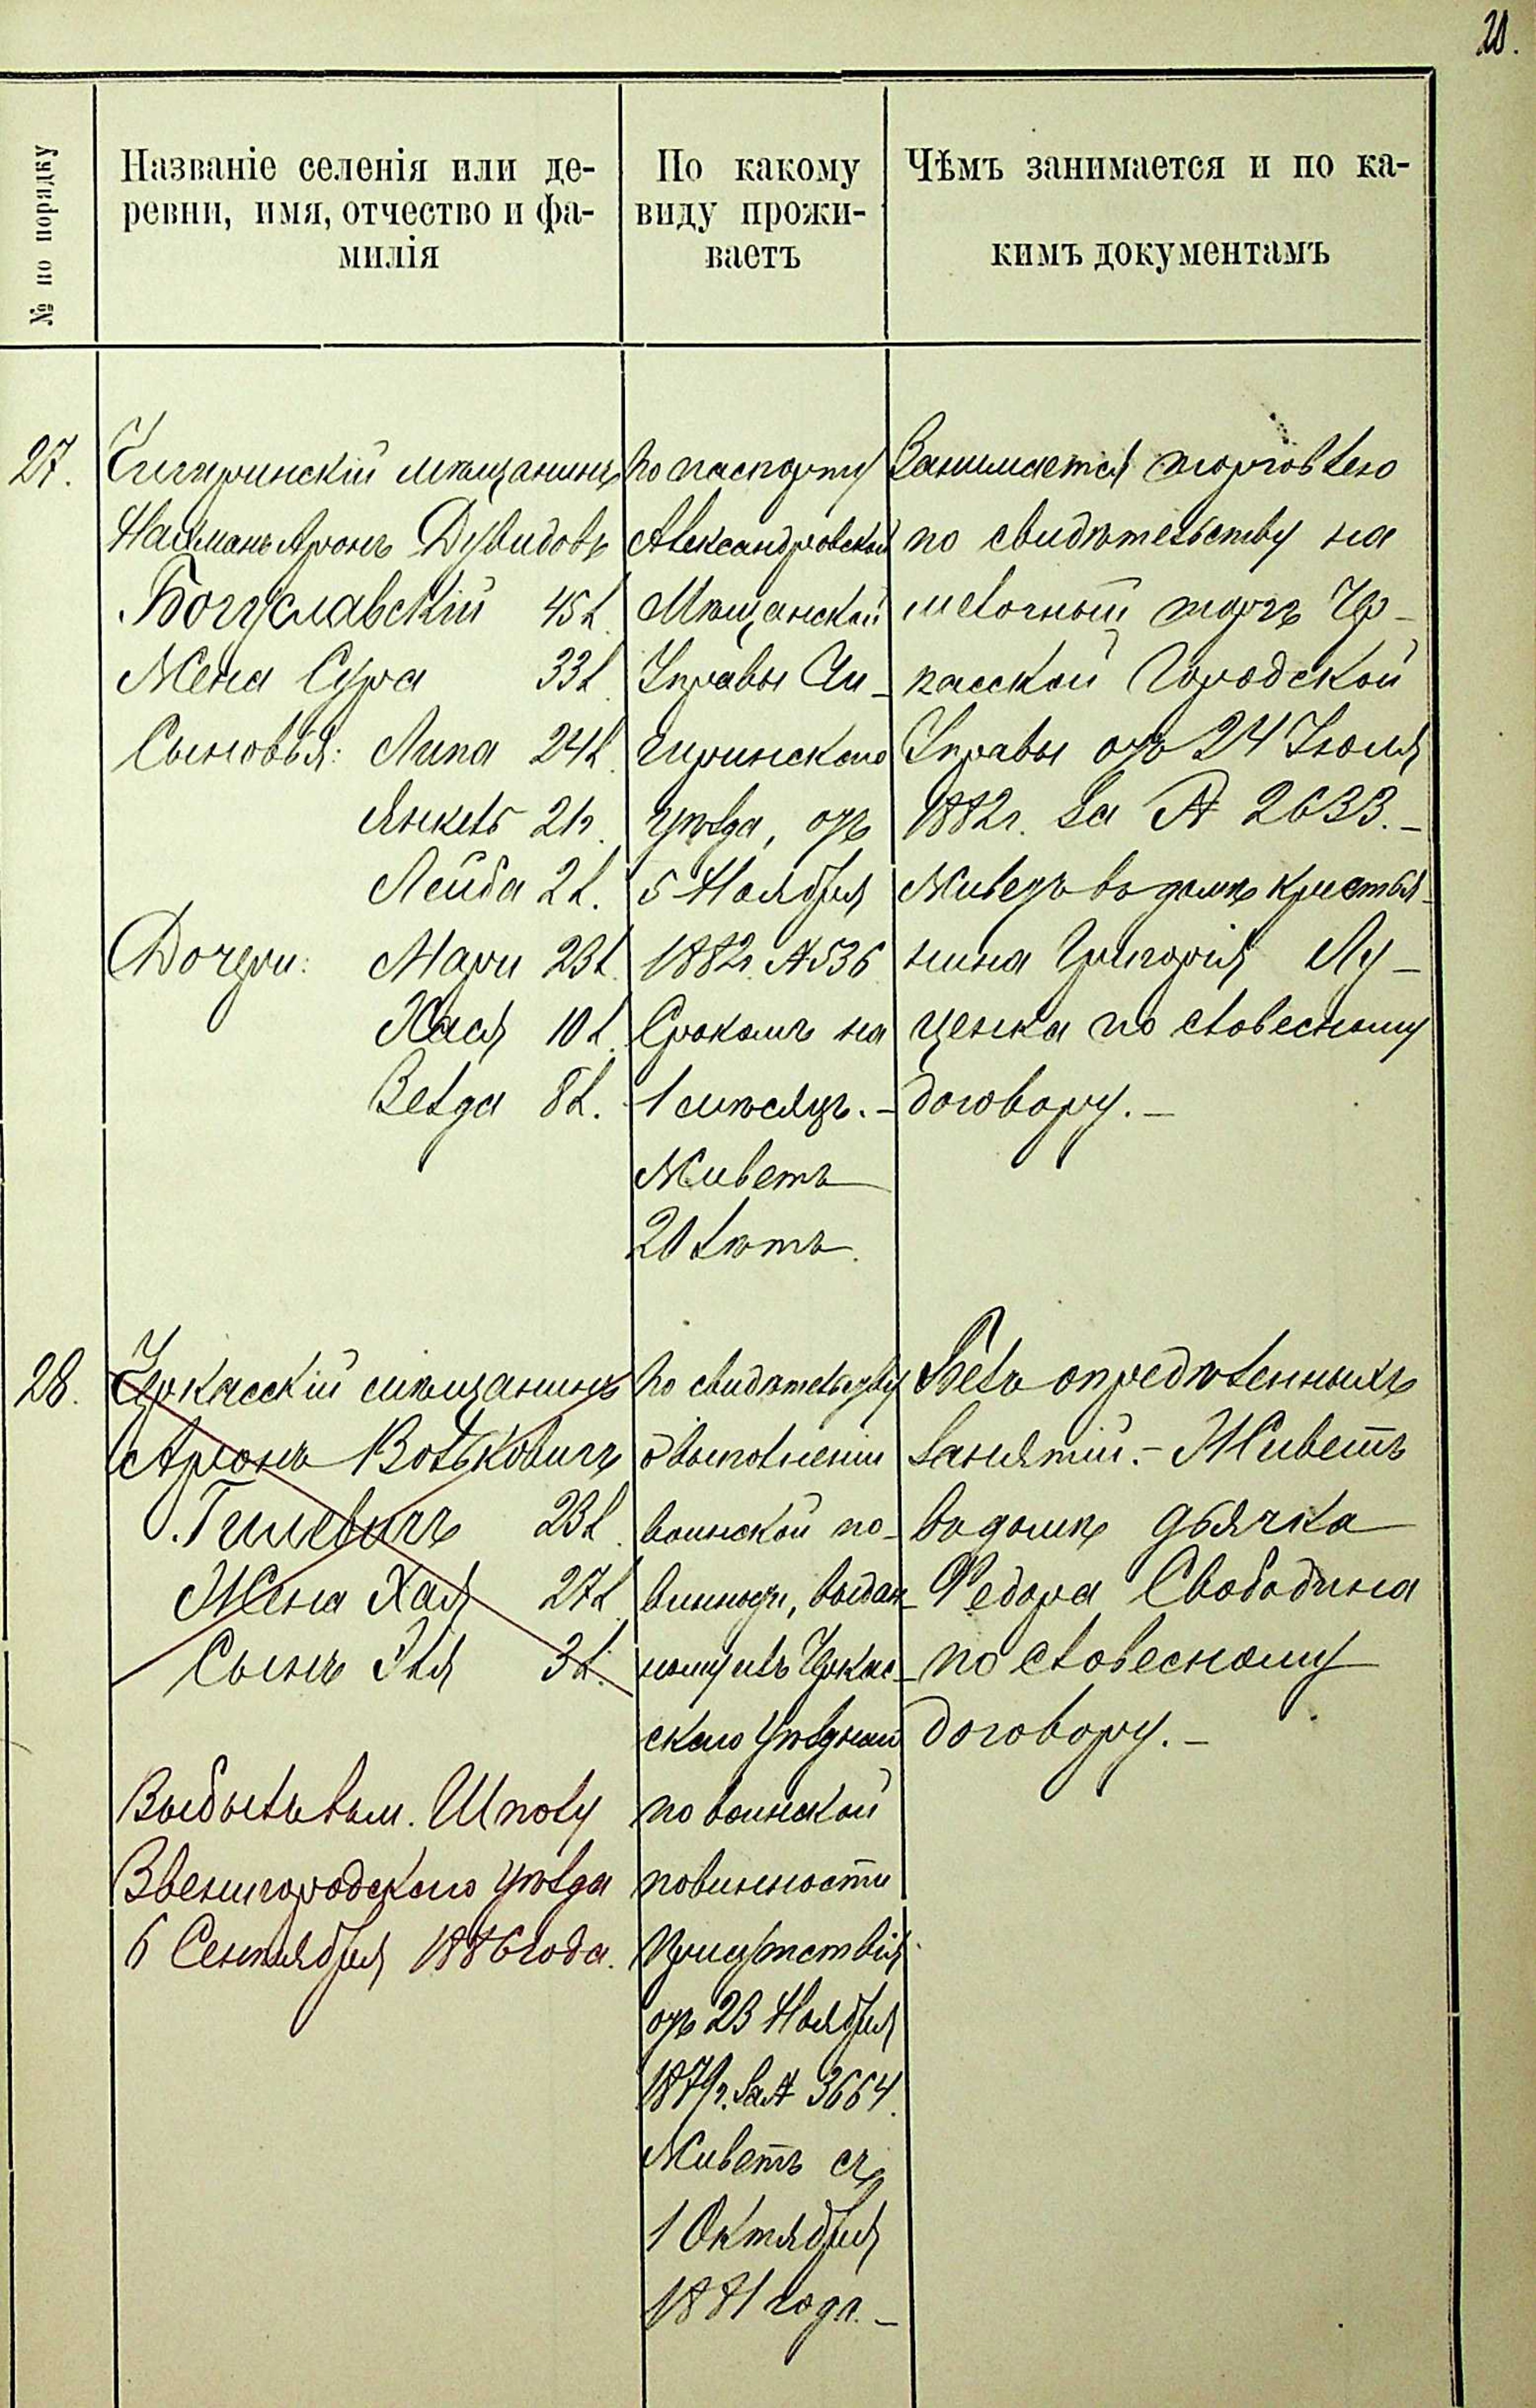 20.
№ по порядку
Названіе селенія или де-
ревни, имя, отчество и фа-
милія
По какому
виду прожи-
ваетъ
Чѣмъ занимается и по ка-
кимъ документамъ
27.
Чигиринскій мѣщанинъ
Нахманъ Аронъ Дувидовъ
Богуславскій 45 л.
Жена Сура 33 л.
Сыновья: Липа 24 л.
Янкель 21 г.
Лейба 2 л.
Дочери: Мари 23 л.
Хася 10 л.
Велда 8 л.
По паспорту
Александровской
Мѣщанской
Управы Чи-
гиринскаго
уѣзда, отъ
5 Ноября
1882 г. № 536
Срокомъ на
1 мѣсяцъ. -
Живетъ
20 лѣтъ.
Занимается торговлею
по свидѣтельству на
мелочный торгъ Чер-
касской Городской
Управы отъ 24 Іюля
1882 г. за № 2633. -
Живетъ въ домѣ крестья-
нина Григорія Лу-
ценка по словесному
договору. -
28.
Черкасскій мѣщанинъ
Аронъ Вольковичъ
Гилевичъ 23 л.
Жена Хая 27 л.
Сынъ Эля 3 л.
Выбылъ въ м. Шполу
Звенигородскаго уѣзда
6 Сентября 1886 года.
По свидѣтельству
о выполненіи
воинской по-
винности, выдан-
ному изъ Черкас-
скаго Уѣзднаго
по воинской
повинности
Присутствія
отъ 23 Ноября
1879 г. за № 3664.
Живетъ съ
1 Октября
1881 года. -
Безъ опредѣленныхъ
занятій. - Живетъ
въ домѣ дьячка
Федора Свободина
по словесному
договору. -